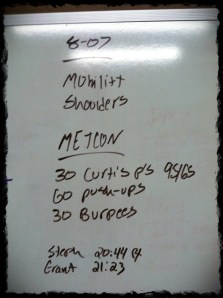 8-07
Mobility
Shoulders
METCON
30 Curtis P's 95/65
60 push-ups
30 Burpees
20:44
Grant 21:23